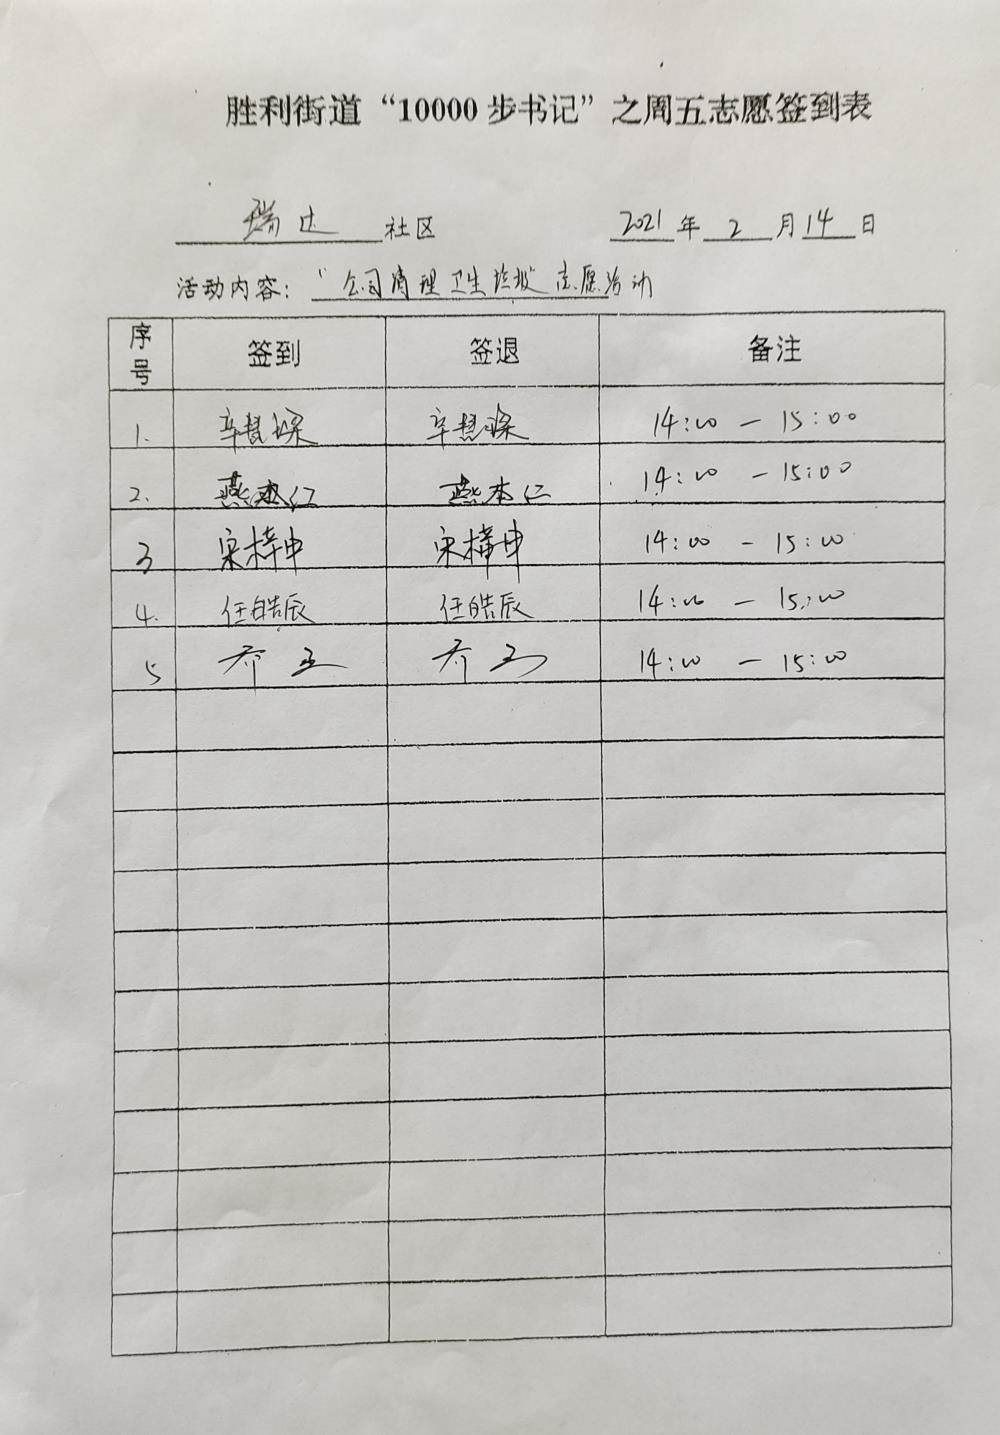 胜利街道“10000步书记”之周五志愿签到表
瑞达社区 2021年2月14日
活动内容：“公司清理卫生垃圾”志愿活动
序号 签到 签退 备注
1. 辛慧 辛慧 14:00 — 15:00
2. 燕本仁 燕本仁 14:00 — 15:00
3 宋梓申 宋梓申 14:00 — 15:00
4. 任皓辰 任皓辰 14:00 — 15:00
5 乔 乔 14:00 — 15:00